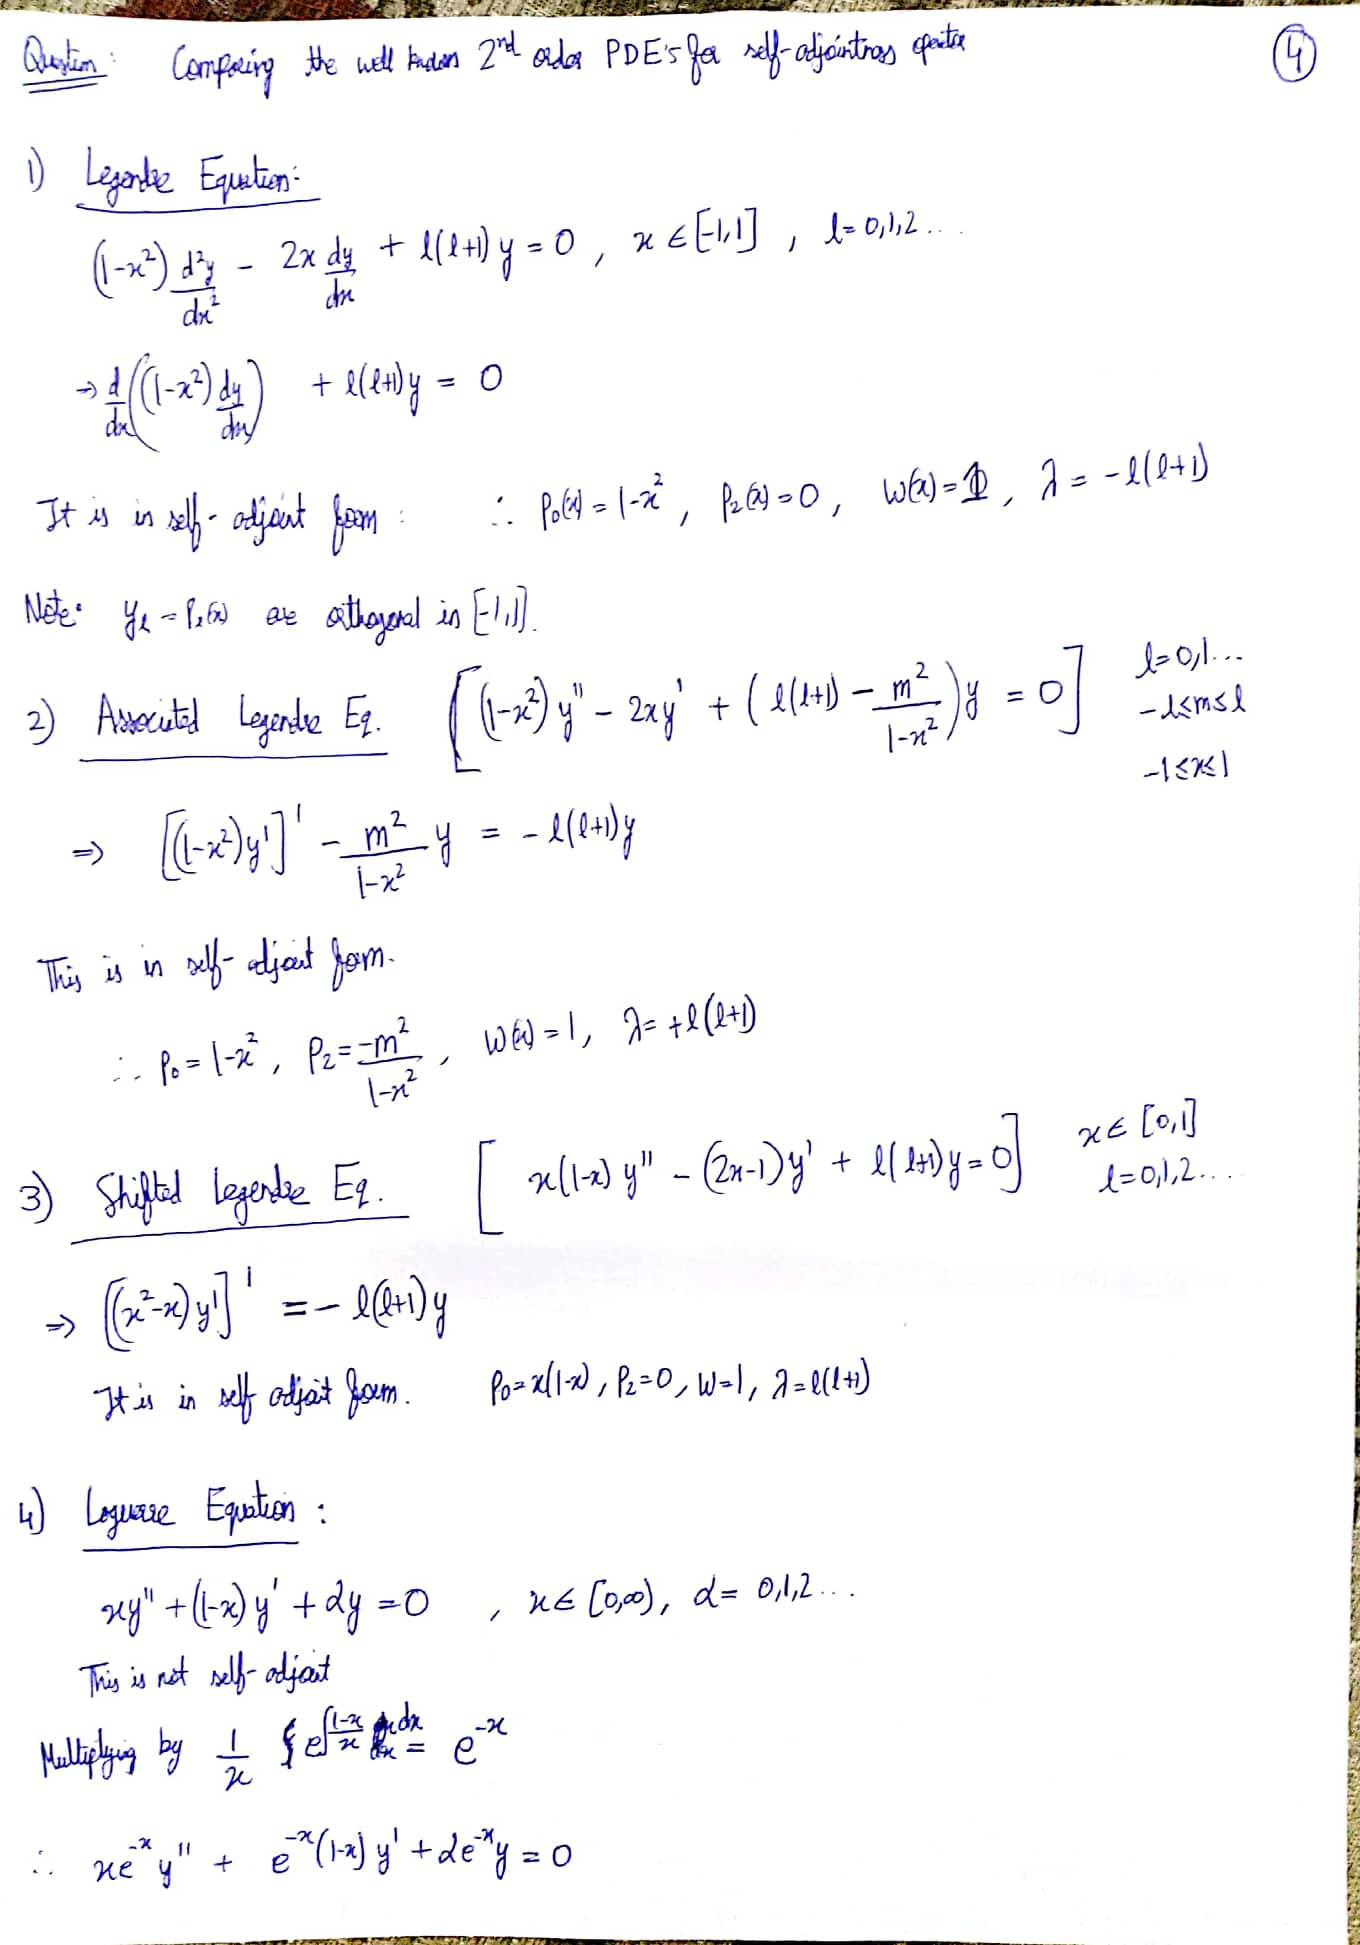 Question: Comparing the well known 2nd order PDE's for self-adjointness operator
④
1) Legendre Equation:
(1-x²) d²y/dx² - 2x dy/dx + l(l+1) y = 0 , x ∈ [-1,1] , l = 0,1,2...
→ d/dx((1-x²) dy/dx) + l(l+1)y = 0
It is in self-adjoint form: ∴ P₀(x) = 1-x² , P₂(x) = 0 , W(x) = 1 , λ = -l(l+1)
Note: yₗ = Pₗ(x) are orthogonal in [-1,1].
2) Associated Legendre Eq. [(1-x²) y'' - 2xy' + (l(l+1) - m²/(1-x²)) y = 0] l=0,1...
-l≤m≤l
-1≤x≤1
⇒ [(1-x²)y']' - m²/(1-x²) y = - l(l+1)y
This is in self-adjoint form.
∴ P₀ = 1-x² , P₂ = -m²/(1-x²) , W(x) = 1, λ = +l(l+1)
3) Shifted Legendre Eq. [x(1-x) y'' - (2x-1)y' + l(l+1)y = 0] x ∈ [0,1]
l=0,1,2...
⇒ [(x²-x)y']' = - l(l+1)y
It is in self adjoint form. P₀ = x(1-x), P₂=0, W=1, λ=l(l+1)
4) Laguerre Equation :
xy'' + (1-x) y' + αy = 0 , x ∈ [0,∞), α = 0,1,2...
This is not self-adjoint
Multiplying by 1/x e^∫(1-x)/x dx = e^-x
∴ xe^-x y'' + e^-x (1-x) y' + αe^-x y = 0